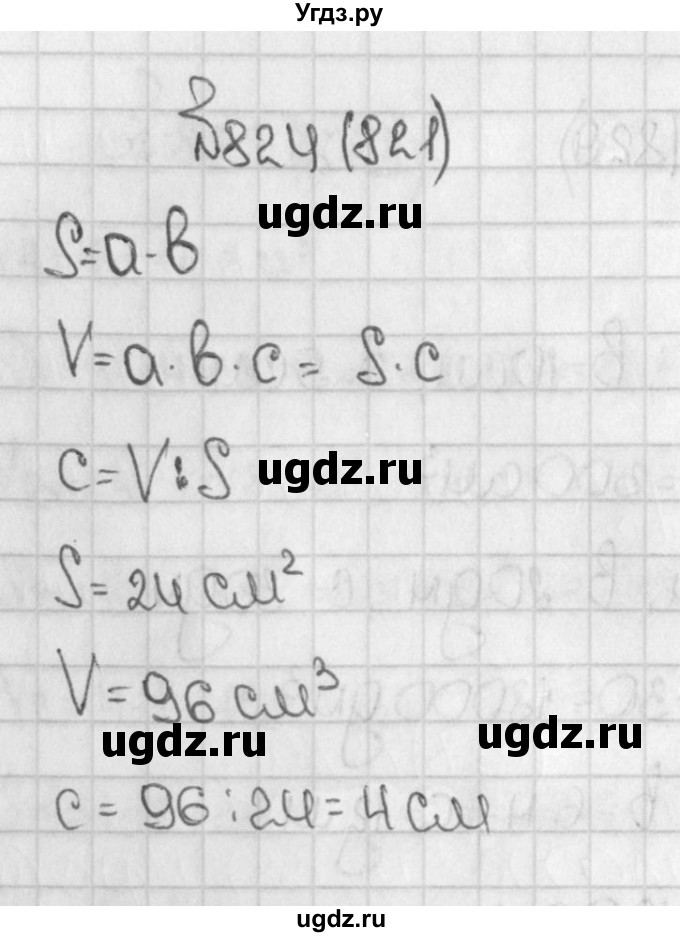 Угдз.ру
№824 (821)
ugdz.ru
S=a·b
V=a·b·c= S·c
c=V:S
ugdz.ru
S=24 см²
V=96 см³
ugdz.ru
ugdz.ru
c=96:24=4 см
ugdz.ru